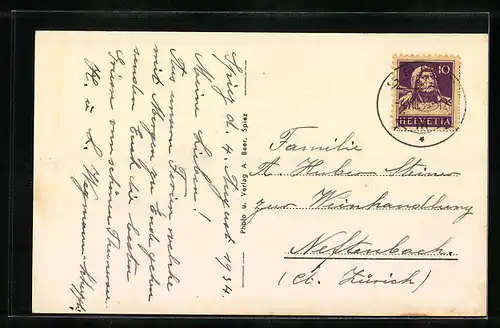 Spiez d. 4. August 1934.
Meine Lieben!
Aus unsern Ferien welche
mit Morgen zu Ende gehen
senden Euch die besten
Grüsse vom schönen Thunersee
H. u. L.
Photo u. Verlag A. Beer, Spiez
10
HELVETIA
Familie
A. Huber-Steiner
zur Weinhandlung
Neftenbach.
(Ct. Zürich)